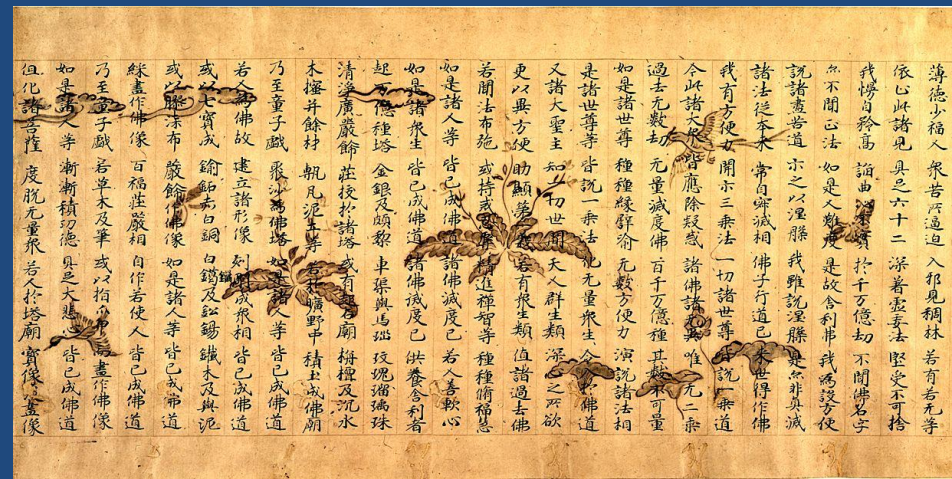 薄德少福人 衆苦所逼迫 入邪見稠林 若有若无等
依止此諸見 具足六十二 深著虛妄法 堅受不可捨
我慢自矜高 諂曲心不實 於千万億劫 不聞佛名字
亦不聞正法 如是人難度 是故舍利弗 我為設方便
說諸盡苦道 示之以涅槃 我雖說涅槃 是亦非真滅
諸法從本來 常自寂滅相 佛子行道已 来世得作佛
我有方便力 開示三乘法 一切諸世尊 皆說一乘道
今此諸大衆 皆應除疑惑 諸佛語无異 唯一无二乘
過去无數劫 无量滅度佛 百千万億種 其數不可量
如是諸世尊 種種緣譬喻 无數方便力 演說諸法相
是諸世尊等 皆說一乘法 化无量衆生 令入於佛道
又諸大聖主 知一切世間 天人群生類 深心之所欲
更以異方便 助顯第一義 若有衆生類 值諸過去佛
若聞法布施 或持戒忍辱 精進禪智等 種種脩福慧
如是諸人等 皆已成佛道 諸佛滅度已 若人善軟心
如是諸衆生 皆已成佛道 諸佛滅度已 供養舍利者
起万億種塔 金銀及頗黎 車璩與馬瑙 玫瑰瑠璃珠
清淨廣嚴飾 莊校於諸塔 或有起石廟 栴檀及沉水
木櫁并餘材 甎瓦泥土等 若於曠野中 積土成佛廟
乃至童子戲 聚沙為佛塔 如是諸人等 皆已成佛道
若人為佛故 建立諸形像 刻雕成衆相 皆已成佛道
或以七寶成 鍮鉐赤白銅 白鑞及鉛錫 鐵木及與泥
或以膠漆布 嚴飾作佛像 如是諸人等 皆已成佛道
綵畫作佛像 百福莊嚴相 自作若使人 皆已成佛道
乃至童子戲 若草木及筆 或以指爪甲 而畫作佛像
如是諸人等 漸漸積功德 具足大悲心 皆已成佛道
但化諸菩薩 度脫无量衆 若人於塔廟 寶像及畫像